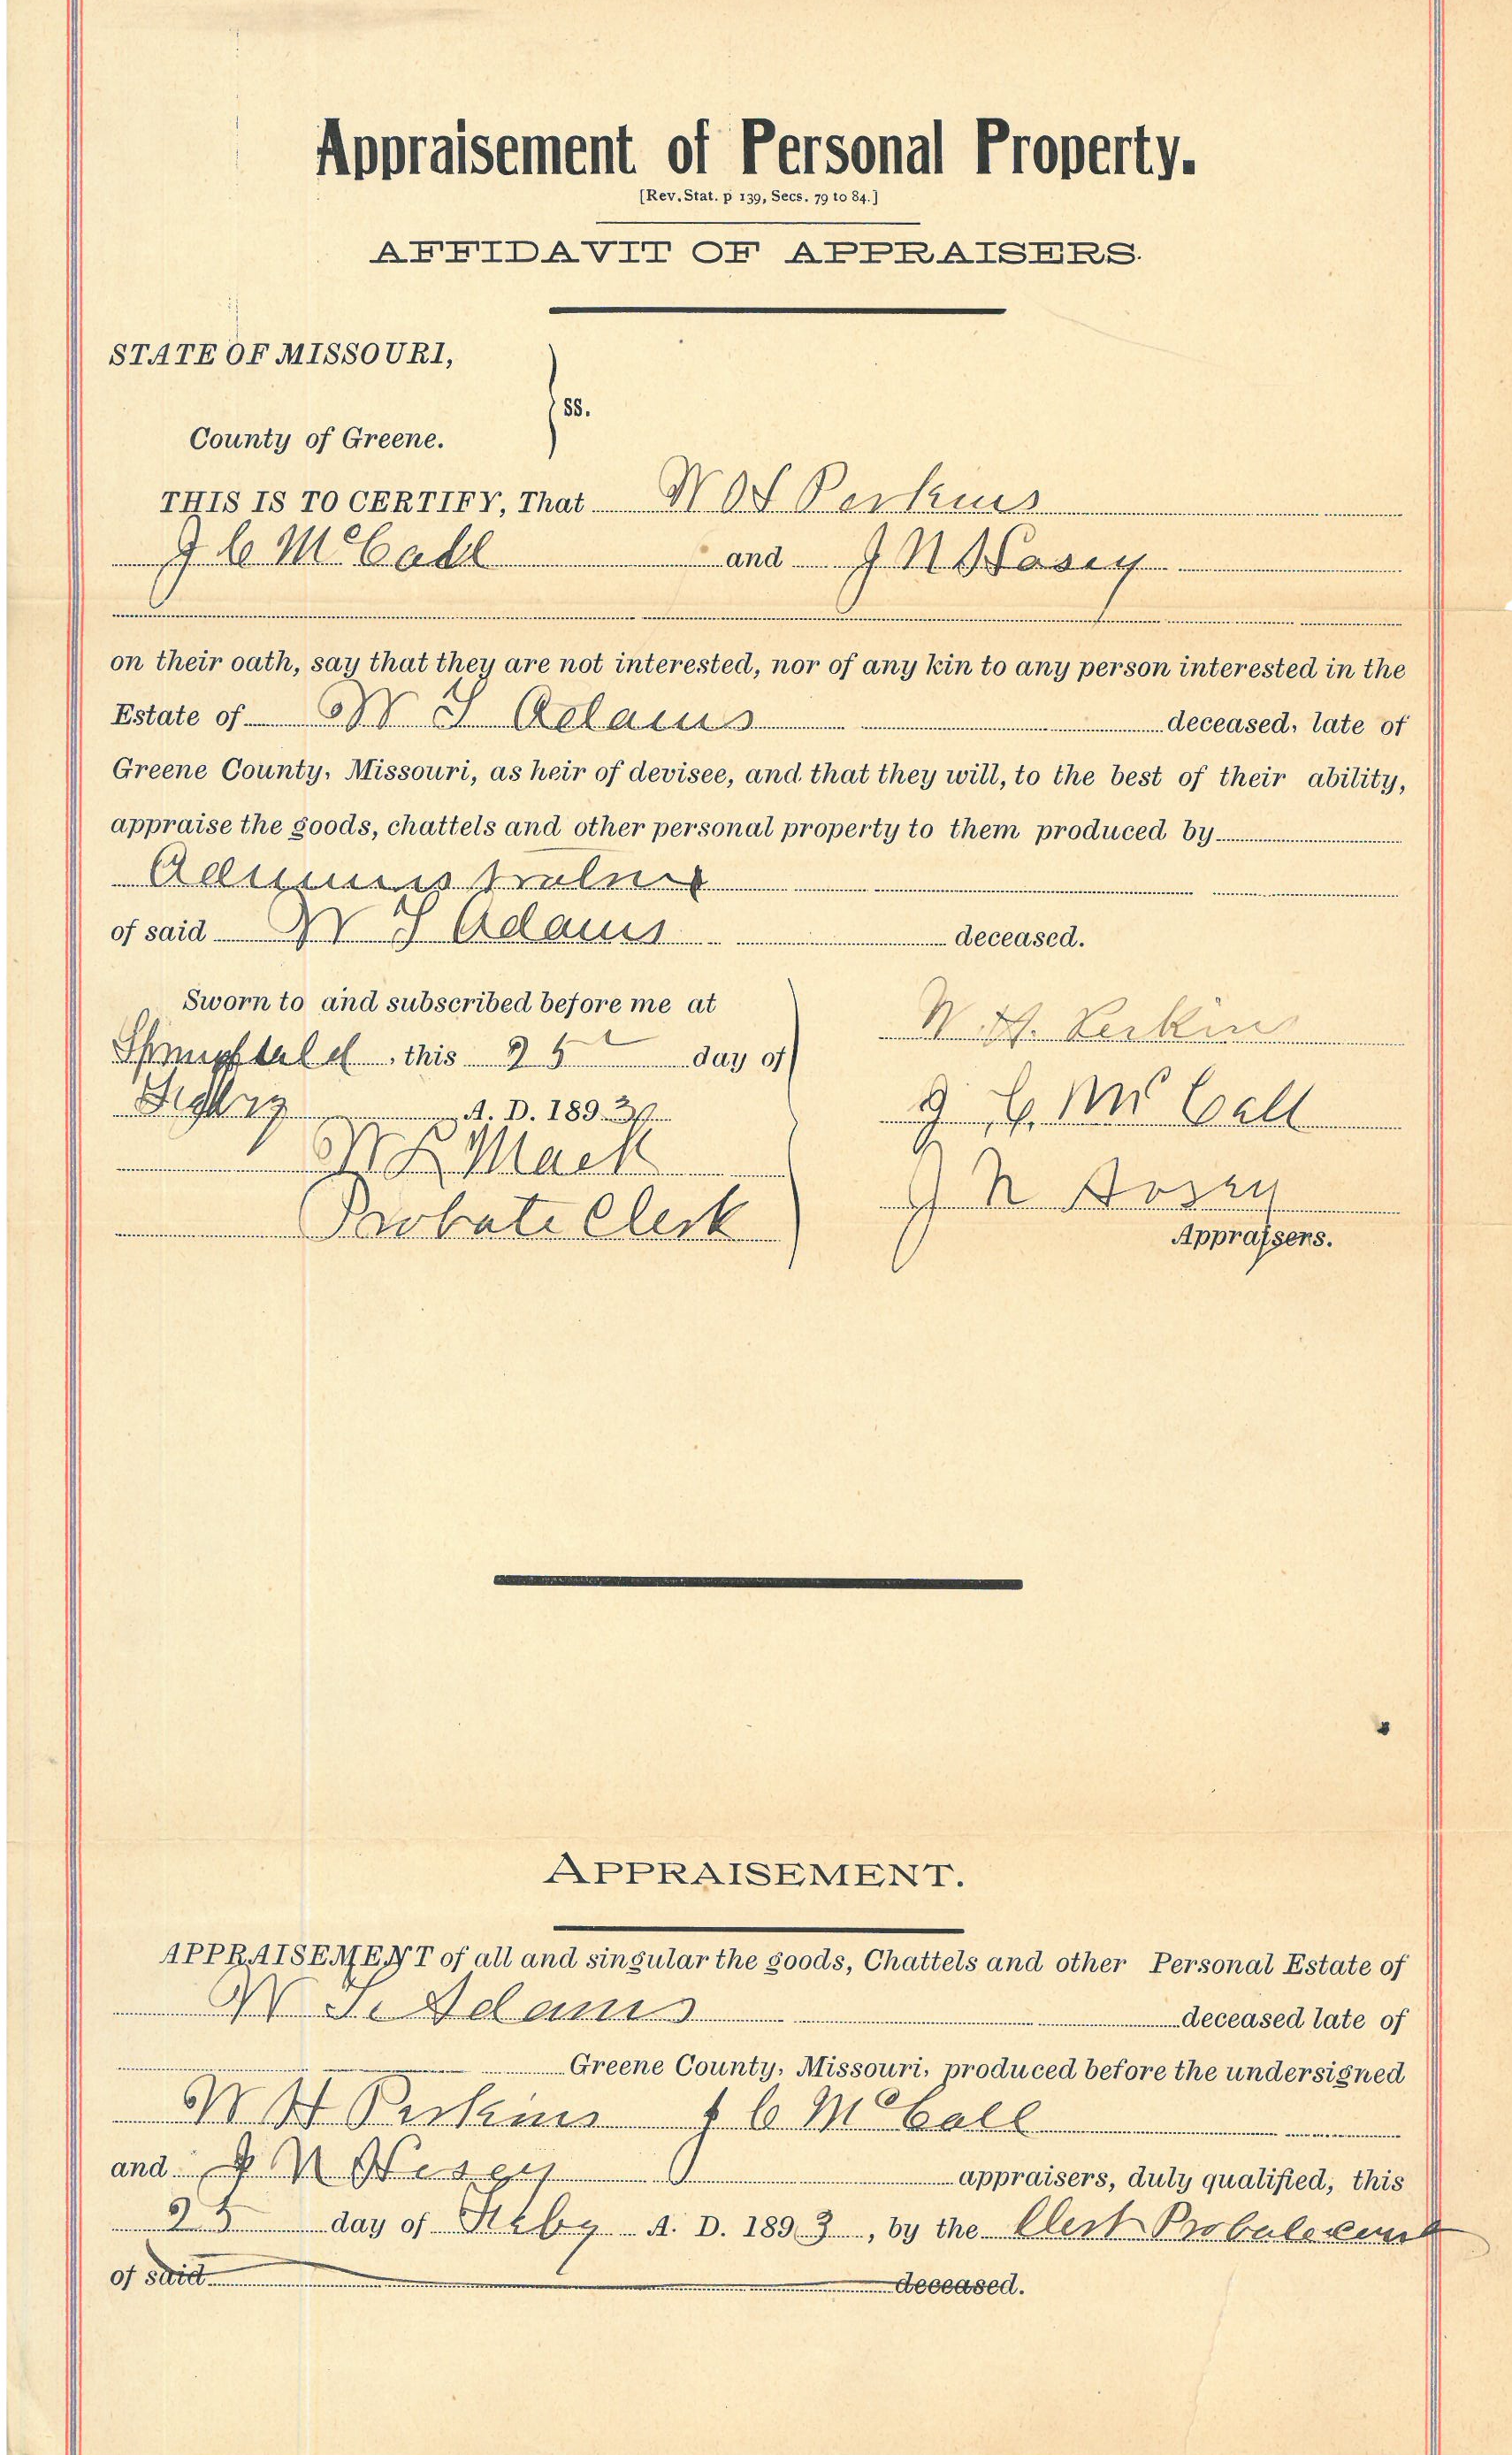 Appraisement of Personal Property.
[Rev. Stat. p 139, Secs. 79 to 84.]
AFFIDAVIT OF APPRAISERS.
STATE OF MISSOURI,
ss.
County of Greene.
THIS IS TO CERTIFY, That W H Perkins
J C McCall and J N Hosey
on their oath, say that they are not interested, nor of any kin to any person interested in the
Estate of W S Adams deceased, late of
Greene County, Missouri, as heir of devisee, and that they will, to the best of their ability,
appraise the goods, chattels and other personal property to them produced by
Administrator
of said W S Adams deceased.
Sworn to and subscribed before me at
Springfield, this 25 day of
Feby A. D. 1893
Mack
Probate Clerk
W. H. Perkins
J. C. McCall
J N Hosey
Appraisers.
APPRAISEMENT.
APPRAISEMENT of all and singular the goods, Chattels and other Personal Estate of
W S. Adams deceased late of
Greene County, Missouri, produced before the undersigned
W H Perkins J C McCall
and J N Hosey appraisers, duly qualified, this
25 day of Feby A. D. 1893, by the Clerk Probate Court
of said deceased.